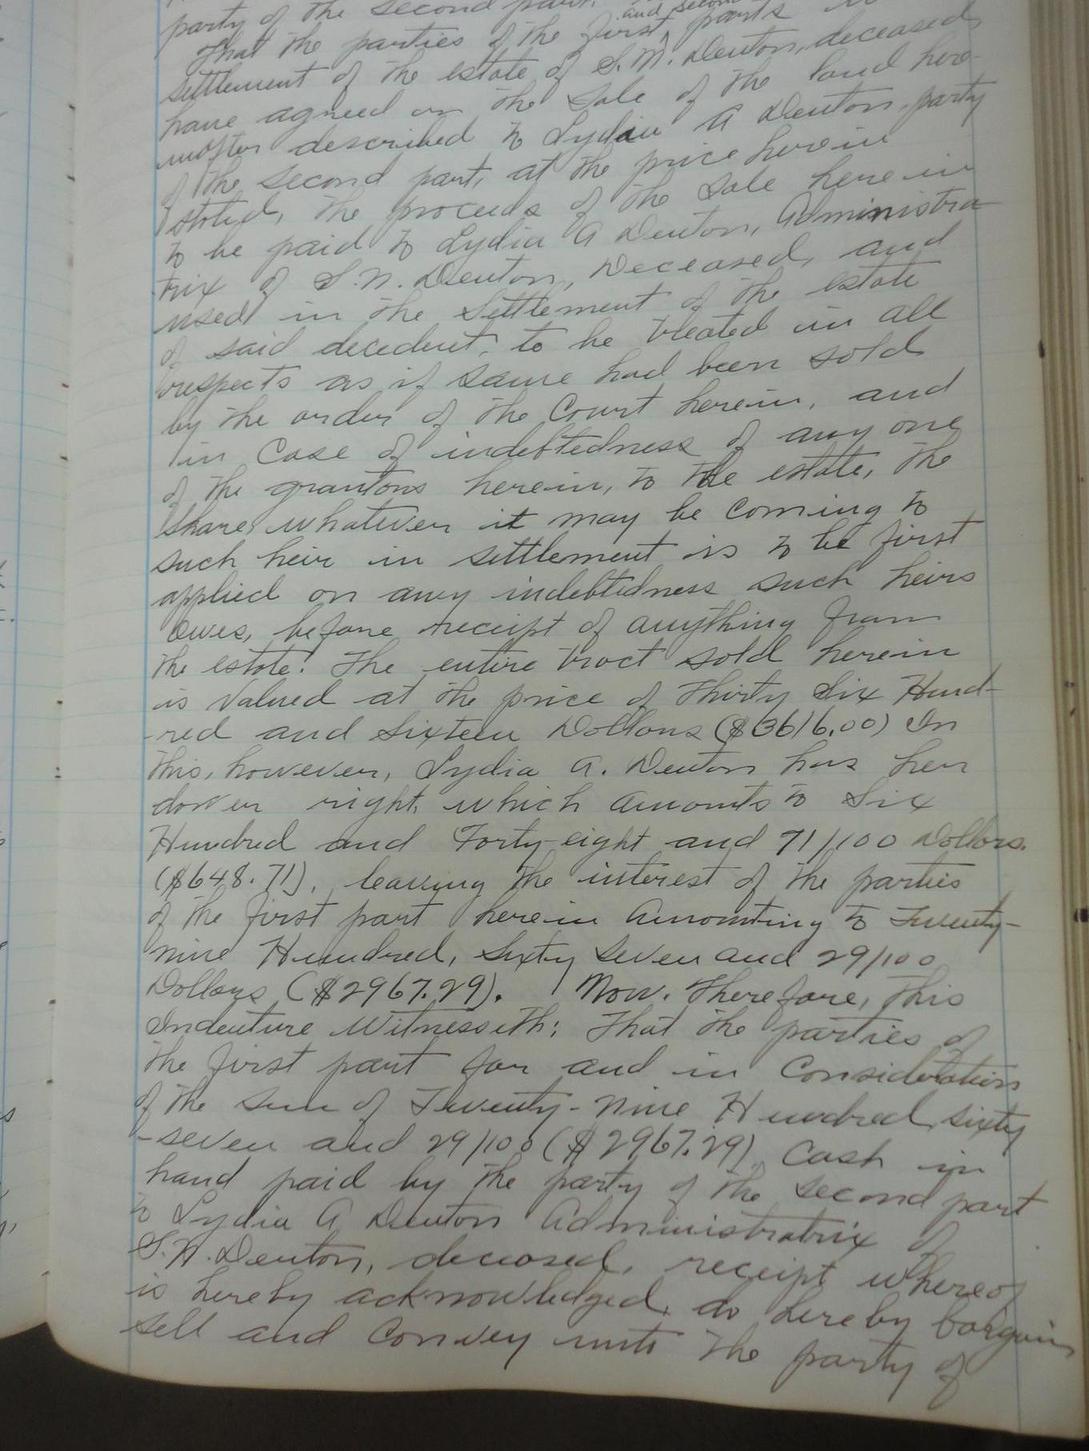 party of the second part.
That the parties of the first and second parts in
settlement of the estate of S.N. Denton, deceased,
have agreed on the sale of the land here-
inafter described to Lydia A Denton, party
of the second part, at the price herein
stated, the proceeds of the sale herein
to be paid to Lydia A Denton, Administra-
trix of S.N. Denton, Deceased, and
used in the settlement of the estate
of said decedent, to be treated in all
respects as if same had been sold
by the order of the Court herein, and
in case of indebtedness of any one
of the grantors herein, to the estate, the
share whatever it may be coming to
such heir in settlement is to be first
applied on any indebtedness such heirs
owes, before receipt of anything from
the estate. The entire tract sold herein
is valued at the price of Thirty Six Hund-
red and Sixteen Dollars ($3616.00) In
this, however, Lydia A. Denton has her
dower right, which amounts to Six
Hundred and Forty-eight and 71/100 Dollars.
($648.71), leaving the interest of the parties
of the first part herein amounting to Twenty-
nine Hundred, Sixty Seven and 29/100
Dollars ($2967.29). Now. Therefore, This
Indenture Witnesseth: That the parties of
the first part for and in Consideration
of the sum of Twenty-Nine Hundred, sixty
-seven and 29/100 ($2967.29) Cash in
hand paid by the party of the second part
to Lydia A Denton Administratrix of
S.N. Denton, deceased, receipt whereof
is hereby acknowledged, do hereby bargain
sell and convey unto the party of